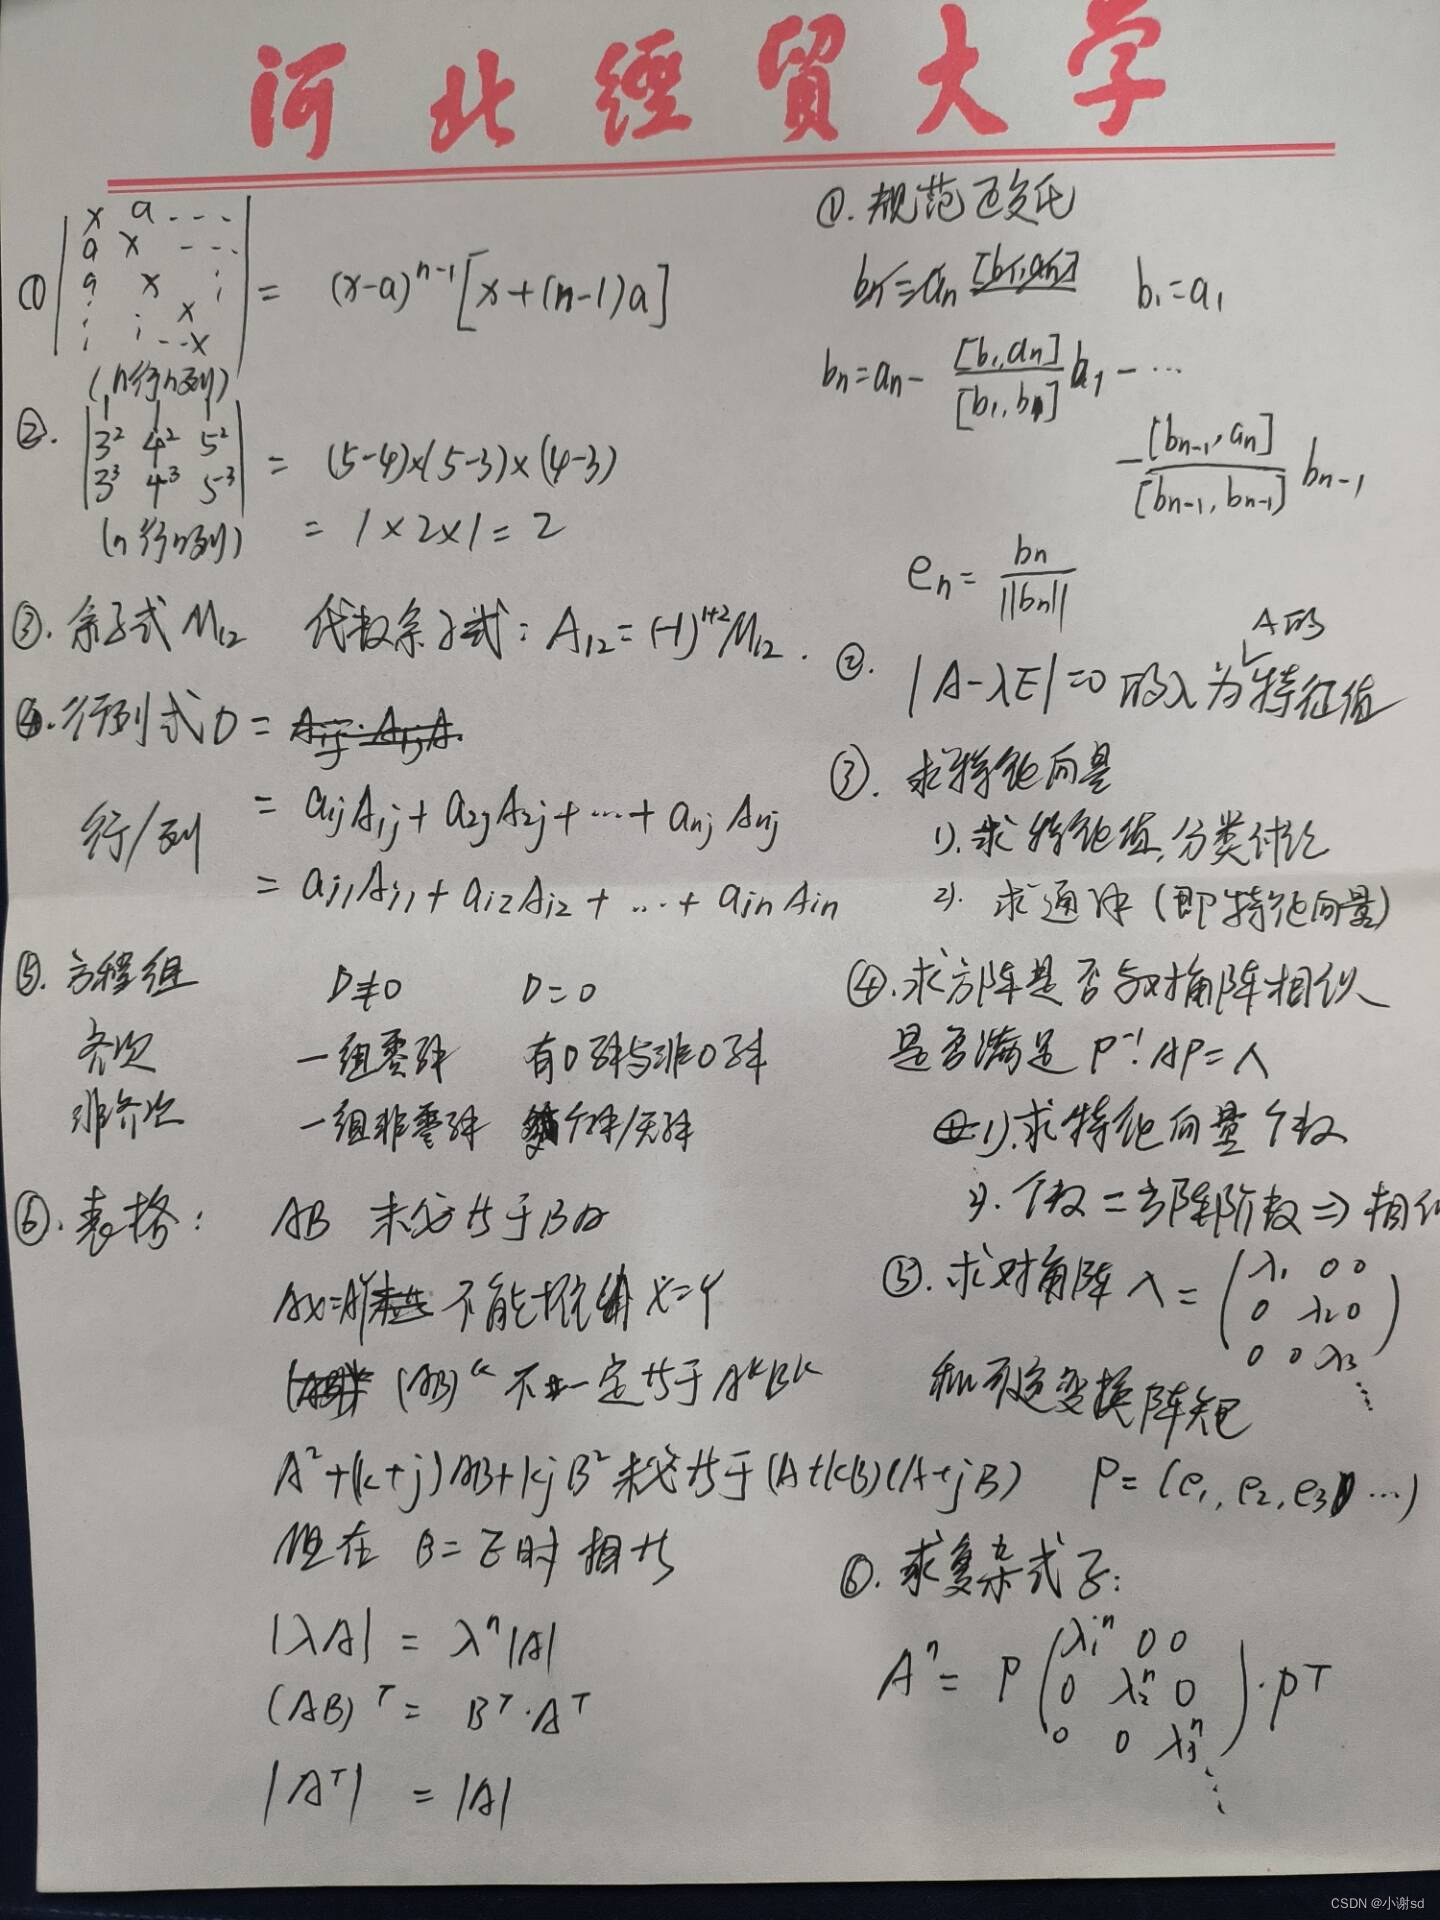 河北經貿大学
① | x a ... |
| a x ... |
| a x ⋮ |
| ⋮ ⋮ x |
| ⋮ ... x | = (x-a)^{n-1}[x+(n-1)a]
(n行n列)
②. | 1 1 1 |
| 3² 4² 5² |
| 3³ 4³ 5³ | = (5-4)×(5-3)×(4-3)
(n行n列) = 1×2×1=2
③. 余子式 M₁₂ 代数余子式: A₁₂=(-1)^{1+2}M₁₂.
④. 行列式D =
行/列 = a_{ij}A_{1j}+a_{2j}A_{2j}+...+a_{nj}A_{nj}
= a_{j1}A_{j1}+a_{i2}A_{i2}+...+a_{jn}A_{in}
⑤. 方程组 D≠0 D=0
齐次 一组零解 有0解与非0解
非齐次 一组非零解 个解/无解
⑥. 表格: AB 未必等于BA
AX=AY 不能推出 X=Y
(AB)^k 不一定等于 A^kB^k
A²+(k+j)AB+kjB² 未必等于(A+kB)(A+jB)
但在 B=E时相等
|λA| = λⁿ|A|
(AB)^T = B^T·A^T
|A^T| = |A|
①. 规范正交化
b₁=a₁
b_n=a_n- [b₁,a_n]/[b₁,b₁] b₁ - ...
- [b_{n-1},a_n]/[b_{n-1},b_{n-1}] b_{n-1}
e_n= b_n/||b_n||
②. |A-λE|=0 的λ为A的特征值
③. 求特征向量
1). 求特征值,分类讨论
2). 求通解(即特征向量)
④. 求方阵是否与对角阵相似
是否满足 P⁻¹AP=Λ
1). 求特征向量个数
2). 个数=方阵阶数⇒相似
⑤. 求对角阵 Λ = ( λ₁ 0 0
0 λ₂ 0
0 0 λ₃ )
⋱
和可逆变换阵矩
P=(e₁, e₂, e₃ ...)
⑥. 求复杂式子:
Aⁿ= P ( λ₁ⁿ 0 0
0 λ₂ⁿ 0
0 0 λ₃ⁿ ) · P^T
⋱
CSDN @小谢sd